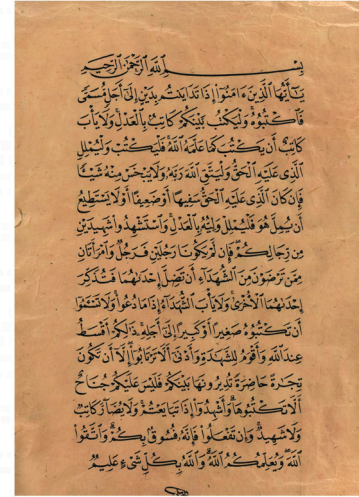 بِسْمِ ٱللَّهِ ٱلرَّحْمَٰنِ ٱلرَّحِيمِ
يَٰٓأَيُّهَا ٱلَّذِينَ ءَامَنُوٓا۟ إِذَا تَدَايَنتُم بِدَيْنٍ إِلَىٰٓ أَجَلٍ مُّسَمًّى
فَٱكْتُبُوهُ وَلْيَكْتُب بَّيْنَكُمْ كَاتِبٌۢ بِٱلْعَدْلِ وَلَا يَأْبَ
كَاتِبٌ أَن يَكْتُبَ كَمَا عَلَّمَهُ ٱللَّهُ فَلْيَكْتُبْ وَلْيُمْلِلِ
ٱلَّذِى عَلَيْهِ ٱلْحَقُّ وَلْيَتَّقِ ٱللَّهَ رَبَّهُۥ وَلَا يَبْخَسْ مِنْهُ شَيْـًٔا
فَإِن كَانَ ٱلَّذِى عَلَيْهِ ٱلْحَقُّ سَفِيهًا أَوْ ضَعِيفًا أَوْ لَا يَسْتَطِيعُ
أَن يُمِلَّ هُوَ فَلْيُمْلِلْ وَلِيُّهُۥ بِٱلْعَدْلِ وَٱسْتَشْهِدُوا۟ شَهِيدَيْنِ
مِن رِّجَالِكُمْ فَإِن لَّمْ يَكُونَا رَجُلَيْنِ فَرَجُلٌ وَٱمْرَأَتَانِ
مِمَّن تَرْضَوْنَ مِنَ ٱلشُّهَدَآءِ أَن تَضِلَّ إِحْدَىٰهُمَا فَتُذَكِّرَ
إِحْدَىٰهُمَا ٱلْأُخْرَىٰ وَلَا يَأْبَ ٱلشُّهَدَآءُ إِذَا مَا دُعُوا۟ وَلَا تَسْـَٔمُوٓا۟
أَن تَكْتُبُوهُ صَغِيرًا أَوْ كَبِيرًا إِلَىٰٓ أَجَلِهِۦ ذَٰلِكُمْ أَقْسَطُ
عِندَ ٱللَّهِ وَأَقْوَمُ لِلشَّهَٰدَةِ وَأَدْنَىٰٓ أَلَّا تَرْتَابُوٓا۟ إِلَّآ أَن تَكُونَ
تِجَٰرَةً حَاضِرَةً تُدِيرُونَهَا بَيْنَكُمْ فَلَيْسَ عَلَيْكُمْ جُنَاحٌ
أَلَّا تَكْتُبُوهَا وَأَشْهِدُوٓا۟ إِذَا تَبَايَعْتُمْ وَلَا يُضَآرَّ كَاتِبٌ
وَلَا شَهِيدٌ وَإِن تَفْعَلُوا۟ فَإِنَّهُۥ فُسُوقٌۢ بِكُمْ وَٱتَّقُوا۟
ٱللَّهَ وَيُعَلِّمُكُمُ ٱللَّهُ وَٱللَّهُ بِكُلِّ شَىْءٍ عَلِيمٌ